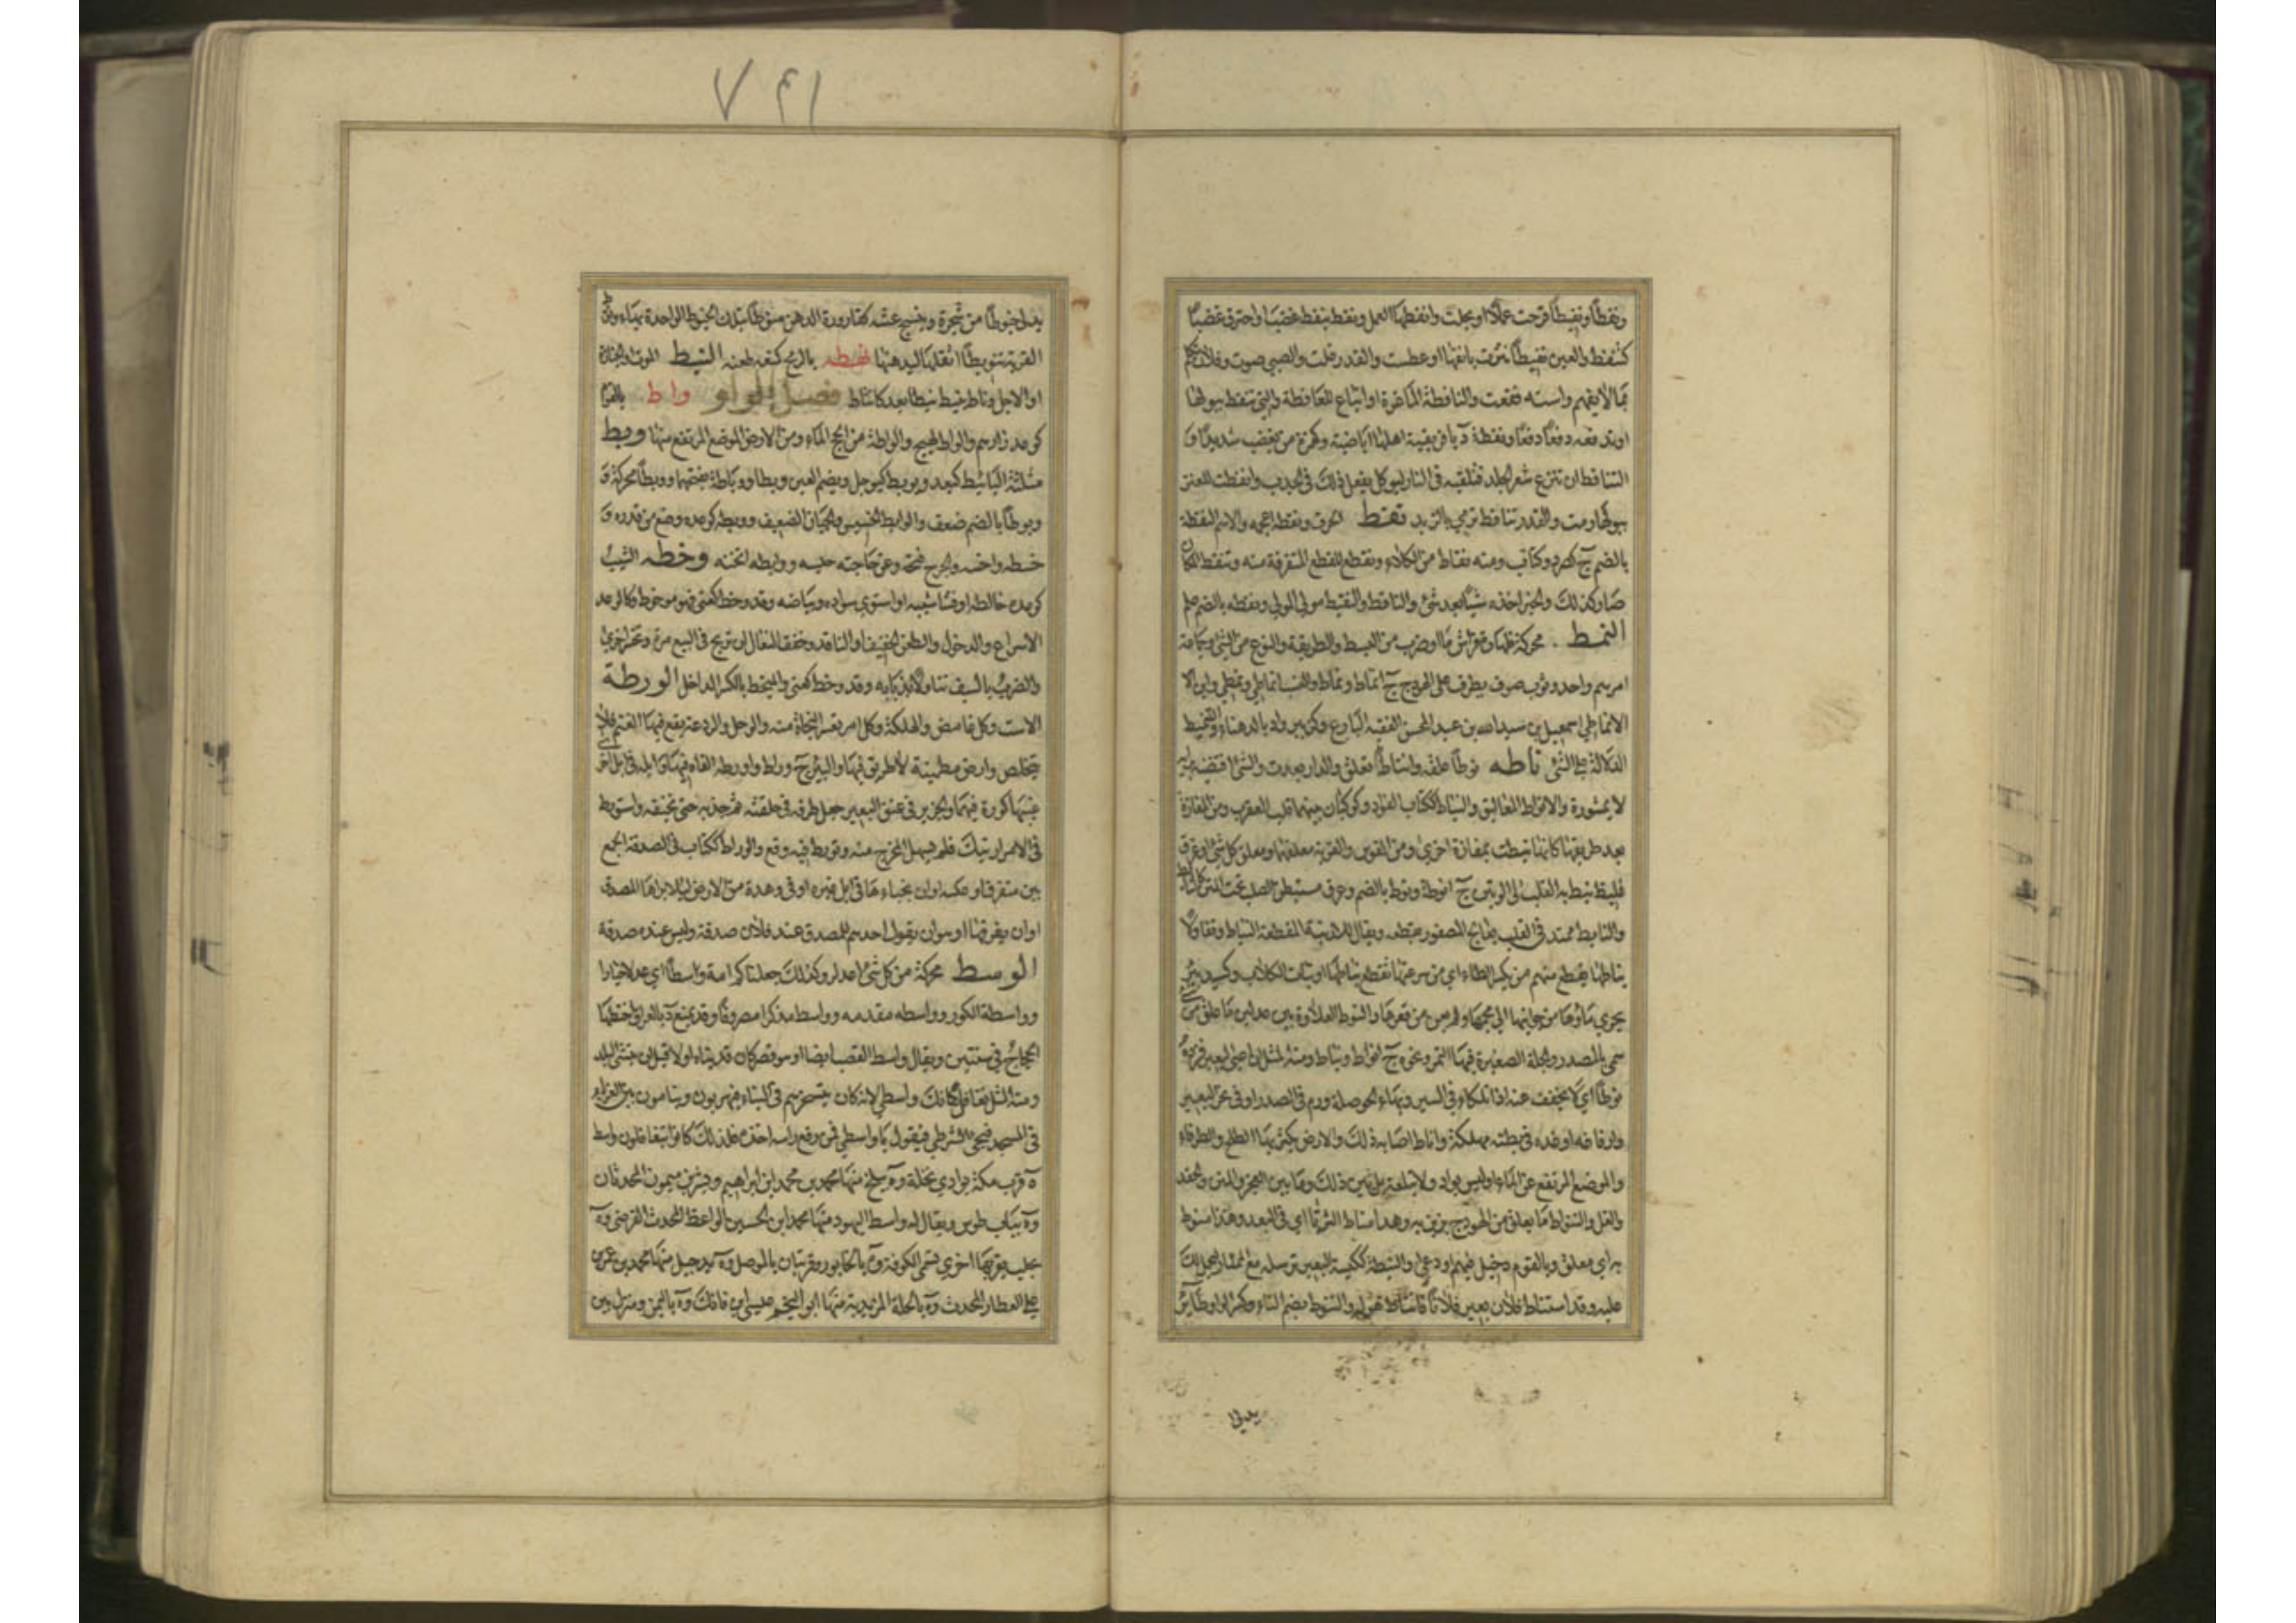 ونفطا ونفيطا قرحت عملا او مجلت وانفطها العمل ونفط ينفط غضب او احترق غضبا
كتنفط والعين نفيطا نثرت بانفها او عطست والقدر غلت والصبي صوت وفلان تكلم
بما لا يفهم واسته فقعت والنافطة الماعزة او اتباع للعافطة والتي تنفط ببولها
اي تدفعه دفعا دفعا ونفطة د بافريقية اهلها اباضية وكهمزة من يغضب شديدا و
التنافط ان تنزع شعر الجلد فتلقيه في النار ليوكل يفعل ذلك في الجدب وانفطت العنز
ببولها رمت والقدر تنافط ترمي بالزبد نقط الحرف ونقطه اعجمه والاسم النقطة
بالضم ج كصرد وكتاب ومنه نقاط من الكلاء ونقطع للقطع المتفرقة منه وتنقط المكان
صار كذلك والخبر اخذه شيئا بعد شئ والناقط والنقيط مولى المولى ونقطه بالضم علم
النمط محركة ظهارة فراش ما او ضرب من البسط والطريقة والنوع من الشئ وجماعة
امرهم واحد وثوب صوف يطرح على الهودج ج انماط ونماط والنسب انماطي ونمطي وابن الا
الانماطي اسمعيل بن عبد الله بن عبد المحسن الفقيه البارع وكزبير واد بالدهناء والتنميط
الدلالة على الشئ ناطه نوطا علقه وانتاط تعلق والدار بعدت والشئ اقتضبه برايه
لا بمشورة والانواط المعاليق والنياط ككتاب الفؤاد وكوكبان بينهما قلب العقرب ومن المفازة
بعد طريقها كانها نيطت بمفازة اخرى ومن القوس والقربة معلقها ومعلق كل شئ او عرق
غليظ نيط به القلب الى الوتين ج انوطة ونوط بالضم وعرق مستبطن الصلب تحت المتن كالنائط
والنايط ممتد في القلب يعالج المصفور بقطعه ويقال للارنب المقطعة النياط تفاؤلا
نياطها يقطع منهم من يكسر الطاء اي من سرعتها تقطع نياطها او نيات الكلاب وكسيد بئر
يجري ماؤها من جوانبها الى مجمها ولم يعن من قعرها والنوط العلاوة بين عدلين ما علق من شئ
سمي بالمصدر والجلة الصغيرة فيها التمر ونحوه ج انواط ونياط ومنه المثل ان اعيى البعير فزده
نوطا اي لا تخفف عنه اذا تلكاء في السير وبهاء الحوصلة ورم في الصدر او في نحر البعير
وارفاغه او غدة في بطنه مهلكة واناط اصابه ذلك والارض يكثر بها الطلح والطرفاء
والموضع المرتفع عن الماء او ليس بواد ولا تبلعة بل بين ذلك وما بين العجز والمتن والحقد
والغل والتنواط ما يعلق من الهودج يزين به وهذا مناط الثريا اي في البعد وهذا منوط
به اي معلق وبالقوم دخيل فيهم او دعي والنيطة ككيسة البعير ترسله مع الممتار ليحمل لك
عليه وقد استناط فلان بعيره فلانا فانتاط هو له والتنوط بضم التاء وكسر الواو طائر
يدلي
يدلي خيوطا من شجرة وينسج عشه كقارورة الدهن منوطا بتلك الخيوط الواحدة بهاء ونوط
القربة تنويطا اثقلها ليدهنها نهطه بالرمح كمنعه طعنه النيط الموت والجنازة
او الاجل وناط ينيط نيطا بعد كانتاط فصل الواو واط القوم
كوعد زارهم والواط الهيج والواطة من لجج الماء ومن الارض الموضع المرتفع منها وبط
مثلثة الباء يبط كيعد ويوبط كيوجل وبضم العين وبطا ووباطة بفتحهما ووبطا محركة و
وبوطا بالضم ضعف والوابط الخسيس والجبان الضعيف ووبطه كوعده وضع من قدره و
حطه واخسه والجرح فتحه وعن حاجته حبسه واوبطه اثخنه وخطه الشيب
كوعده خالطه او فشا شيبه او استوى سواده وبياضه وقد وخط كعني فهو موخوط وكالوعد
الاسراع والدخول والطعن الخفيف او النافذ وخفق النعال ان تربح في البيع مرة وتخسر اخرى
والضرب بالسيف تناولا بذبابه وقد وخط كعني والميخط بالكسر الداخل الورطة
الاست وكل غامض والهلكة وكل امر تعسر النجاة منه والوحل والردغة يقع فيها الغنم فلا
يتخلص وارض مطمئنة لا طريق فيها والبئر ج وراط واورطه القاه فيها وابله في ابل اخرى
غيبها كورط فيهما والجرير في عنق البعير جعل طرفه في حلقته ثم جذبه حتى تخنقه واستورط
في الامر ارتبك فلم يسهل المخرج منه وتورط فيه وقع والوراط ككتاب في الصدقة الجمع
بين متفرق او عكسه او ان يخباءها في ابل غيره او في وهدة من الارض ليلا يراها المصدق
او ان يفرقها او هو ان يقول احدهم للمصدق عند فلان صدقة وليس عنده صدقة
الوسط محركة من كل شئ اعدله وكذلك جعلناكم امة وسطا اي عدلا خيارا
وواسطة الكور وواسطه مقدمه وواسط مذكرا مصروفا وقد يمنع د بالعراق اختطها
الحجاج في سنتين ويقال واسط القصب ايضا او هو قصر كان قد بناه اولا قبل ان ينشئ البلد
ومنه المثل تغافل كانك واسطي لانه كان يتسخرهم في البناء فيهربون وينامون بين الغرباء
في المسجد فيجئ الشرطي فيقول يا واسطي فمن رفع راسه اخذه فلذلك كانوا يتغافلون واسط
ة قرب مكة بوادي نخلة وة ببلخ منها محمد بن محمد بن ابراهيم وبشير بن ميمون المحدثان
وة بباب طوس ويقال له واسط اليهود منها محمد ابن الحسين الواعظ المحدث الفرضي وة
بحلب بقربها اخرى تسمى الكوفة وة بالخابور وقريتان بالموصل وة بدجيل منها محمد بن عمر بن
علي العطار المحدث وة بالحلة المزيدية منها ابو النجم عيسى ابن فاتك وة باليمن ومنزل بين